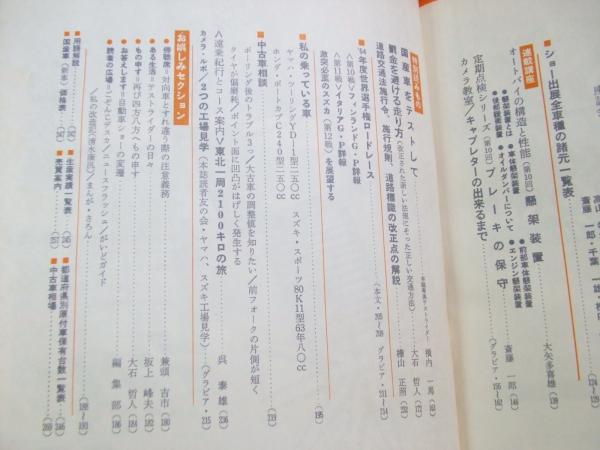 ショー出展全車種の諸元一覧表
斎藤 一郎・千葉 一雄
連載講座
オートバイの構造と性能(第10回) 懸架装置
大矢多喜雄
●懸架装置とは ●車体懸架装置 ●前部車体懸架装置
●後部緩衝装置 ●オイルダンパーについて ●エンジン懸架装置
定期点検シリーズ(第10回) ブレーキの保守
斎藤 一郎
カメラ教室/キャブレターの出来るまで
〈グラビア・155〜162〉
特別読みもの
国産車をテストして
本誌専属テストライダー 横内 一馬
罰金を避ける走り方(改正された新しい法規にそった正しい交通方法)
檜山 正照
道路交通法施行令、施行規則、道路標識の改正点の解説
'64年度世界選手権ロードレース
〈第10戦〉フィンランドG・P詳報
〈第11戦〉イタリアG・P詳報
〈本文・205〜208 グラビア・211〜214〉
激突必至のスズカ(第12戦)を展望する
私の乗っている車
ヤマハ・ツーリングYD1型二五〇cc スズキ・スポーツ80K11型63年八〇cc
ホンダ・ポートカブC240型二五〇cc
中古車相談
ボーリング後のトラブル3つ/大古車の調整値を知りたい/前フォークの片側が短く
タイヤが偏磨耗/ポイント面に凹凸がはげしく発生する
八遠乗紀行とコース案内〉東北一周2100キロの旅
呉 泰雄
カメラ・ルポ/2つの工場見学(本誌読者友の会・ヤマハ、スズキ工場見学)
〈グラビア・215〉
お娯しみセクション
●傍聴席=対向車とすれ違う際の注意義務
兼頭 吉市
●ある生活=テストライダーの日々
坂上 峰夫
●もの申す=再び四方八方へもの申す
大石 哲人
●お答えします=自動車ショーの変遷
編集部
●読者の広場=ごぞんじデスカ/ニュースフラッシュ/がいどガイド
/私の改造記(清水康民)/まんが・さろん
●用語解説
●国産車(新車)価格表
●生産実績一覧表
●売買案内
●都道府県別原付車保有台数一覧表
●中古車相場